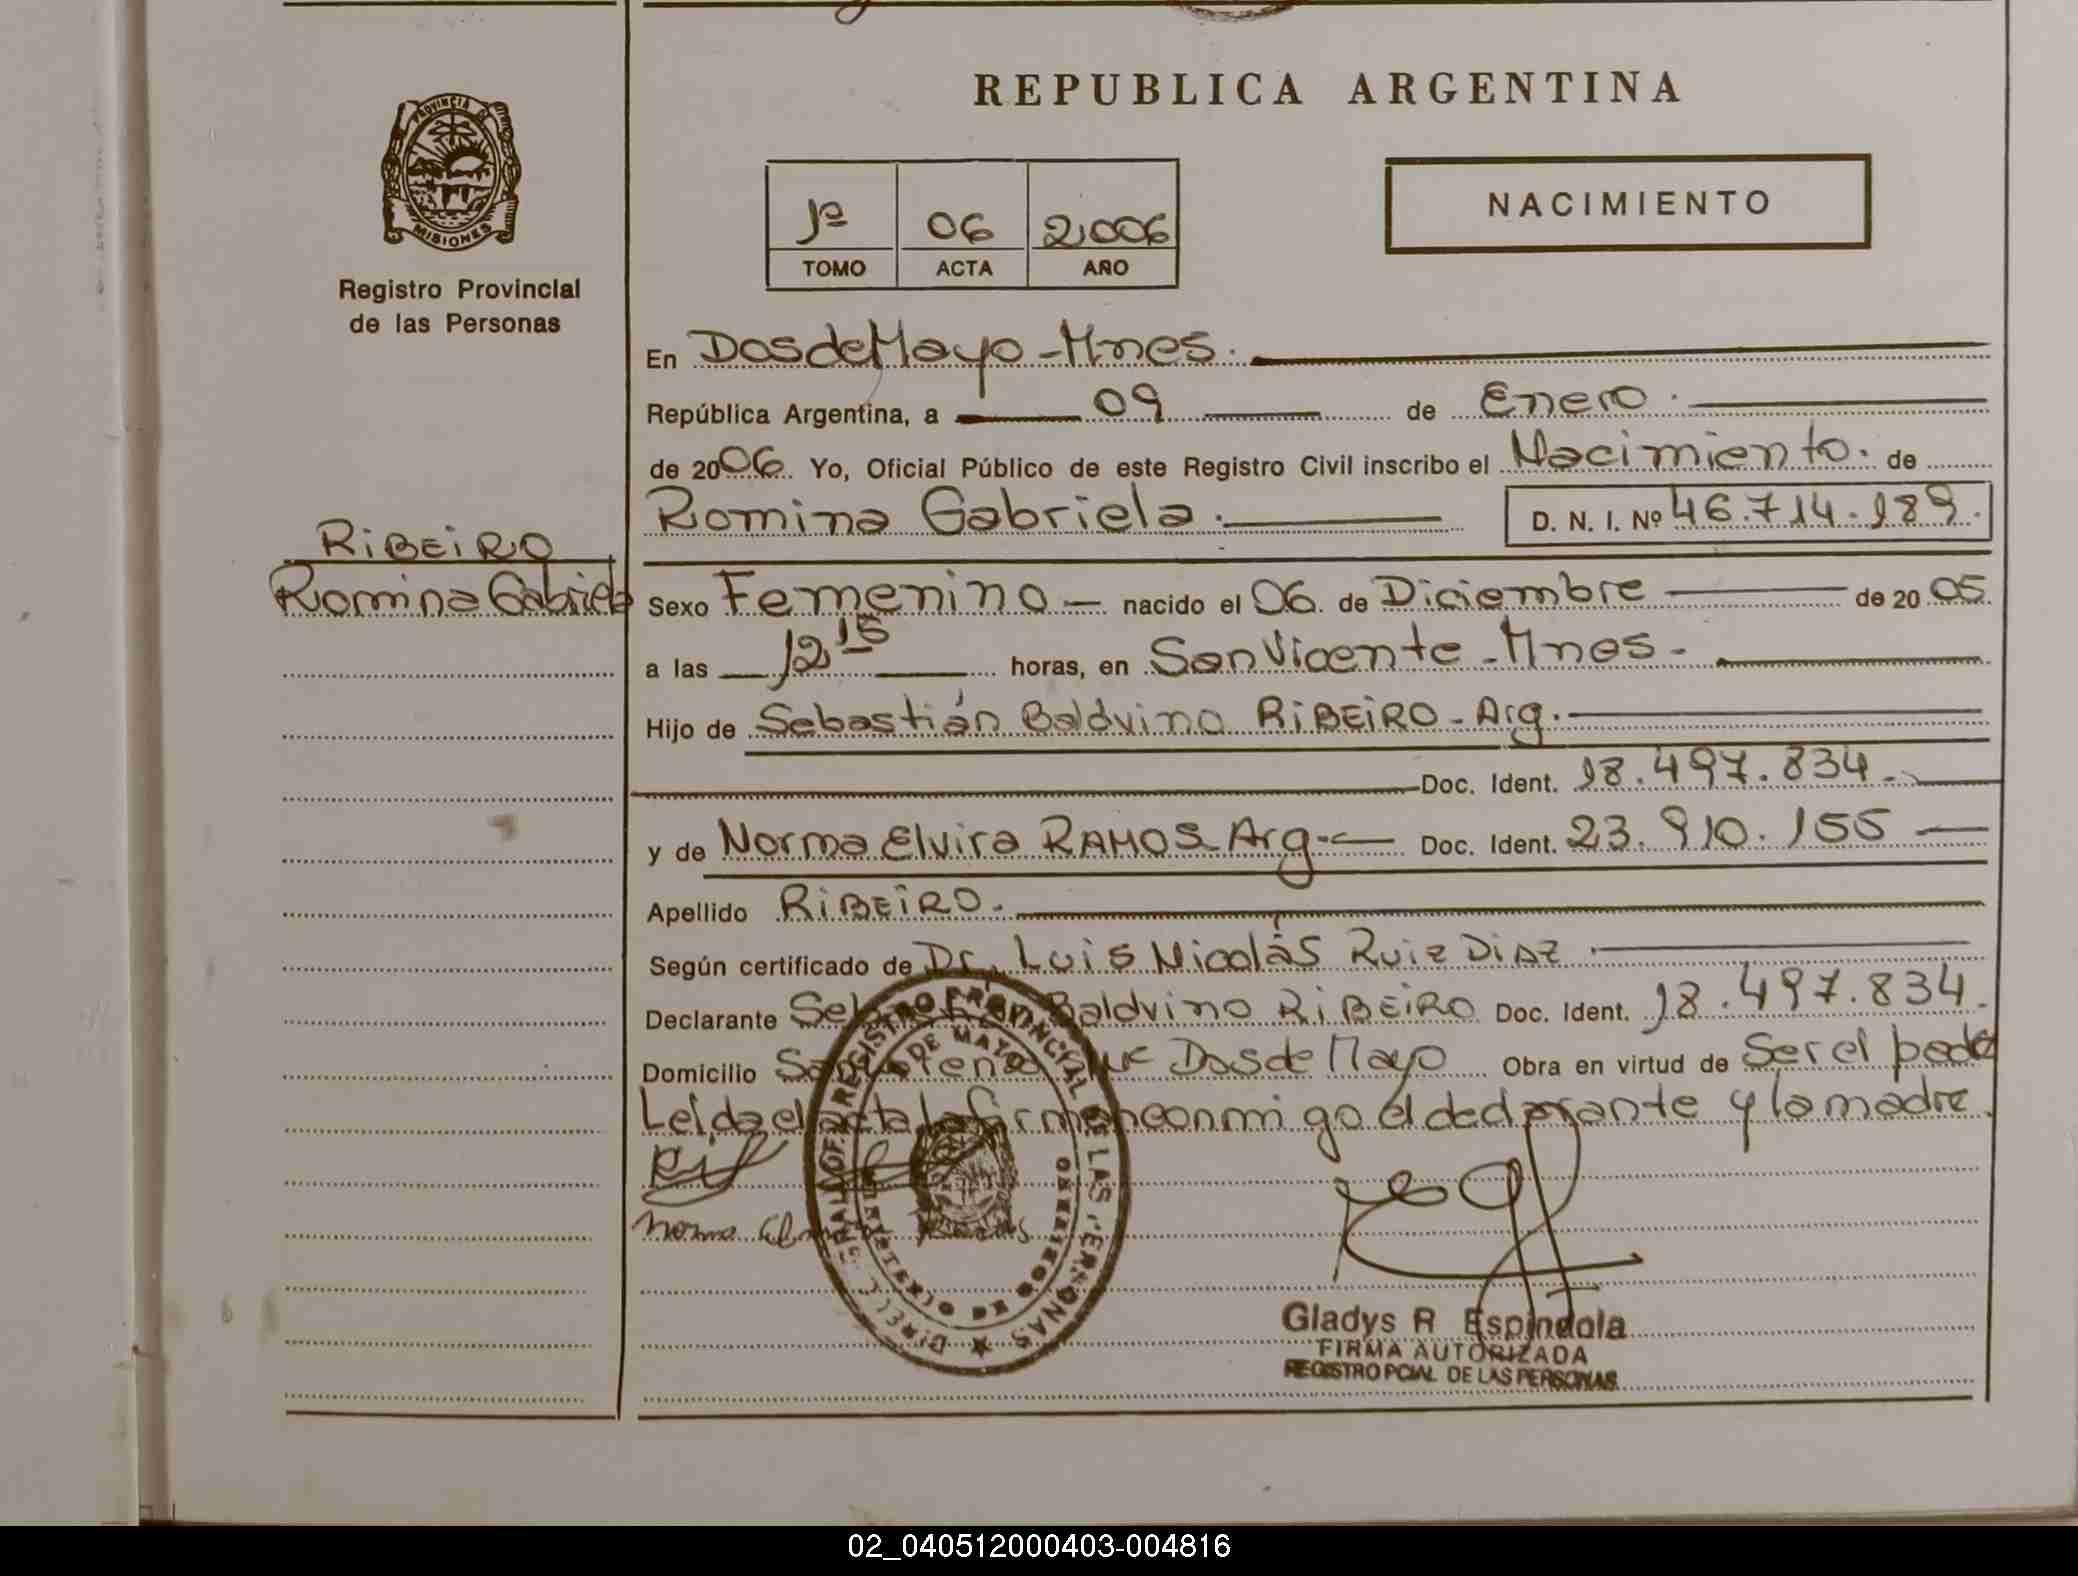 REPUBLICA ARGENTINA
PROVINCIA DE
MISIONES
Registro Provincial
de las Personas
1º 06 2,006
TOMO ACTA AÑO
NACIMIENTO
En Dos de Mayo - Mnes.
República Argentina, a 09 de Enero.
de 2006. Yo, Oficial Público de este Registro Civil inscribo el Nacimiento. de
Romina Gabriela. D. N. I. Nº 46.714.189.
RiBEiRO
Romina Gabriela
Sexo Femenino - nacido el 06 de Diciembre de 2005
a las 12 15 horas, en San Vicente - Mnes -
Hijo de Sebastián Baldvino RiBEiRO - Arg.
Doc. Ident. 18.497.834.
y de Norma Elvira RAMOS Arg. Doc. Ident. 23.910.155
Apellido RiBEiRO.
Según certificado de Dr. Luis Nicolás Ruiz Diaz
Declarante Baldvino RiBEiRO Doc. Ident. 18.497.834.
Domicilio Dos de Mayo Obra en virtud de Ser el padre
Leída el acta la firman conmigo él declarante y la madre.
Norma
REGISTRO PROVINCIAL DE LAS PERSONAS
DE MAYO
Gladys R Espindola
FIRMA AUTORIZADA
REGISTRO PCIAL DE LAS PERSONAS
02_040512000403-004816